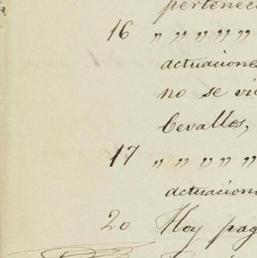 pertenec
16 " " " " "
actuacione
no se vi
Cevallos,
17 " " " "
actuacion
20 Hoy pag